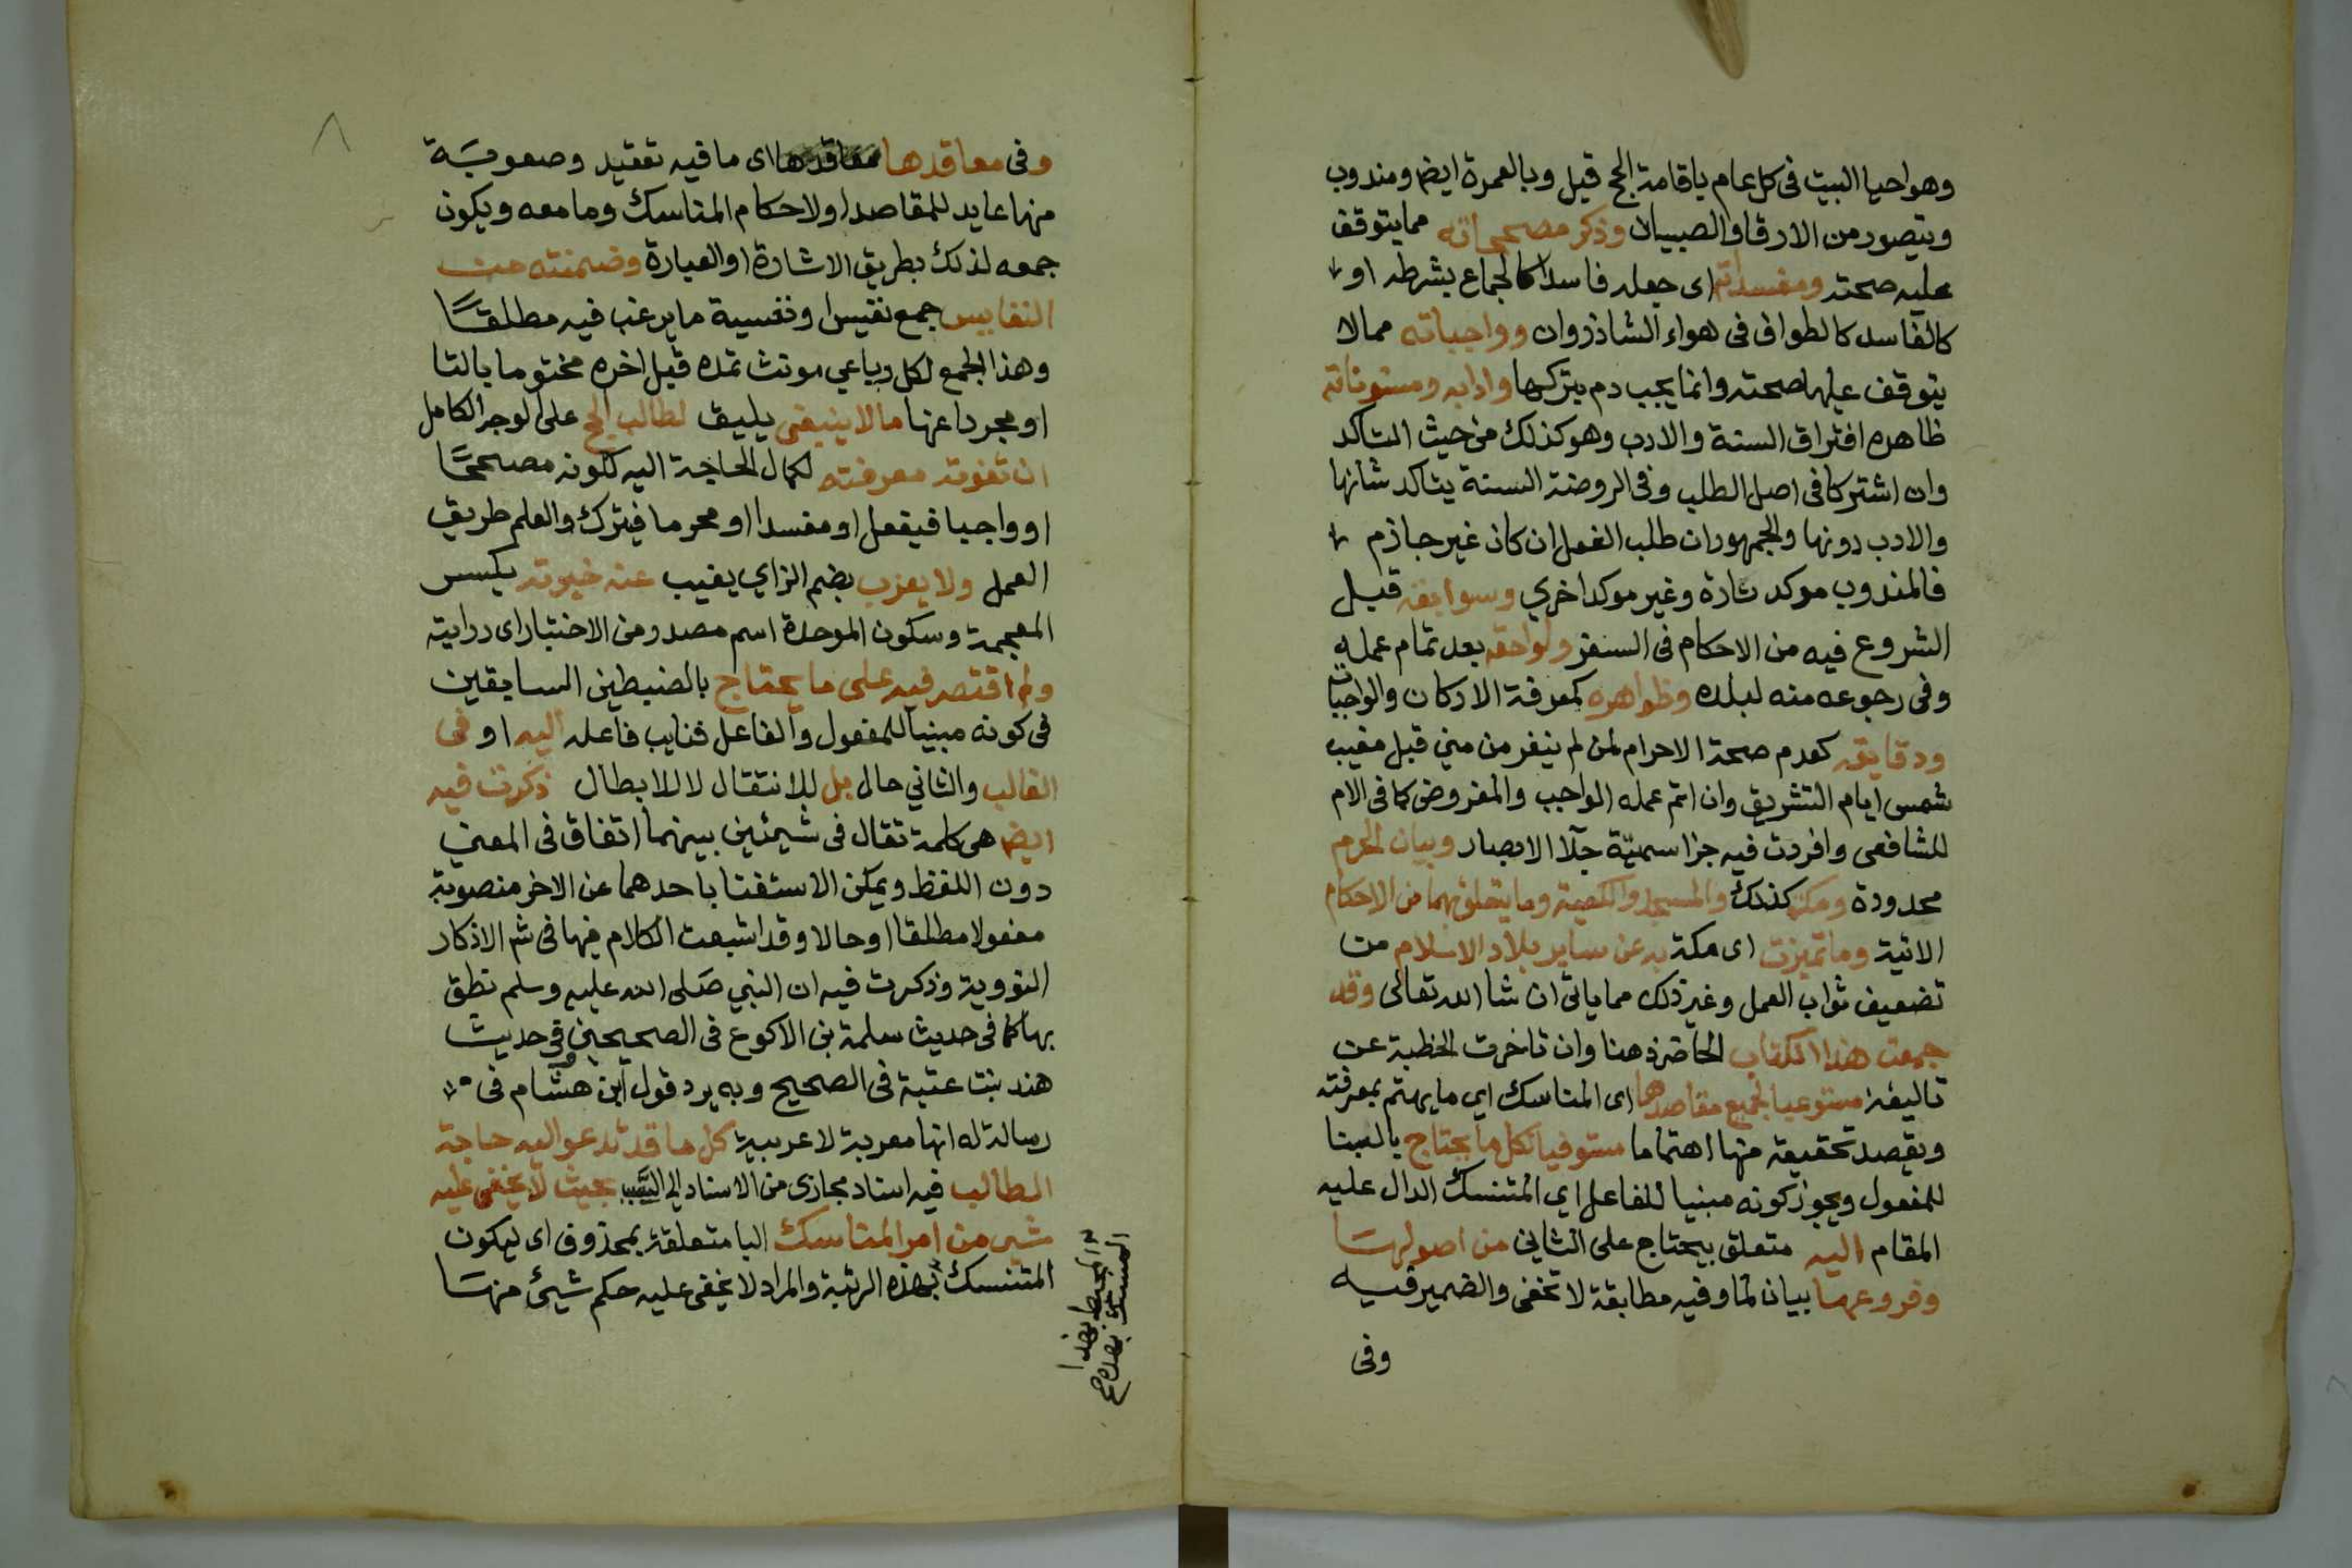 وهو احيا البيت فى كل عام باقامة الحج قيل وبالعمرة ايضا ومندوب
ويتصور من الارقا والصبيان وذكر مصححاته مما يتوقف
عليه صحته ومفسداته اى جعله فاسدا كالجماع بشرطه او
كالفاسد كالطواف فى هواء الشاذروان وواجباته ممالا
يتوقف عليها صحته وانما يجب دم بتركها وادابه ومسنوناته
ظاهره افتراق السنة والادب وهو كذلك من حيث التاكد
وان اشتركا فى اصل الطلب وفى الروضة السنة يتاكد شانها
والادب دونها والجمهور ان طلب الفعل ان كان غير جازم
فالمندوب موكد تارة وغير موكد اخري وسوابقه قبل
الشروع فيه من الاحكام فى السفر ولواحقه بعد تمام عمله
وفى رجوعه منه لبلده وظواهره كمعرفة الاركان والواجبات
ودقايقه كعدم صحة الاحرام لمن لم ينفر من منى قبل مغيب
شمس ايام التشريق وان اتم عمله الواجب والمفروض كما فى الام
للشافعى وافردت فيه جزا سميته جلا الابصار وبيان الحرم
محدودة ومكة كذلك والمسجد والكعبة وما يتعلق بهما من الاحكام
الاتية وما تميزت اى مكة به عن ساير بلاد الاسلام من
تضعيف ثواب العمل وغير ذلك مما ياتى ان شا الله تعالى وقد
جمعت هذا الكتاب الحاضر ذهنا وان تاخرت الخطبة عن
تاليفه مستوعبا لجميع مقاصدها اى المناسك اي ما يهتم بمعرفته
ويقصد تحقيقه منها اهتماما مستوفيا لكل ما يحتاج بالبنا
للمفعول ويجوز كونه مبنيا للفاعل اي المتنسك الدال عليه
المقام اليه متعلق بيحتاج على الثاني من اصولها
وفروعها بيان لما وفيه مطابقة لا تخفى والضمير فيه
وفى
وفى معاقدها اى ما فيه تعقيد وصعوبة
منها عايد للمقاصد او لاحكام المناسك وما معه ويكون
جمعه لذلك بطريق الاشارة او العبارة وضمنته من
النفايس جمع نفيس او نفيسة ما يرغب فيه مطلقا
وهذا الجمع لكل رباعي مونث بمدة قبل اخره مختوما بالتا
او مجردا عنها ما لا ينبغى يليق لطالب الحج على الوجه الكامل
ان تفوته معرفته لكمال الحاجة اليه لكونه مصححا
او واجبا فيفعل او مفسدا او محرما فيترك والعلم طريق
العمل ولا يعزب بضم الزاي يغيب عنه خبرته بكسر
المعجمة وسكون الموحدة اسم مصدر من الاختبار اى درايته
ولم اقتصر فيه على ما يحتاج بالضبطين السابقين
فى كونه مبنيا للمفعول والفاعل فنايب فاعله اليه او فى
الغالب والثاني حال بل للانتقال لا للابطال ذكرت فيه
ايضا هى كلمة تقال فى شيئين بينهما اتفاق فى المعنى
دون اللفظ ويمكن الاستغنا باحدهما عن الاخر منصوبة
مفعولا مطلقا او حالا وقد اشبعت الكلام فيها فى شرح الاذكار
النووية وذكرت فيه ان النبي صلى الله عليه وسلم نطق
بها كما فى حديث سلمة بن الاكوع فى الصحيحين وفى حديث
هند بنت عتبة فى الصحيح وبه يرد قول ابن هشام فى
رسالة له انها معربة لا عربية كل ما قد تدعو اليه حاجة
الطالب فيه اسناد مجازى من الاسناد الى السبب بحيث لا يخفى عليه
شيء من امر المناسك البا متعلقة بمحذوف اى ليكون
المتنسك بهذه الرتبة والمراد لا يخفى عليه حكم شيئ منها